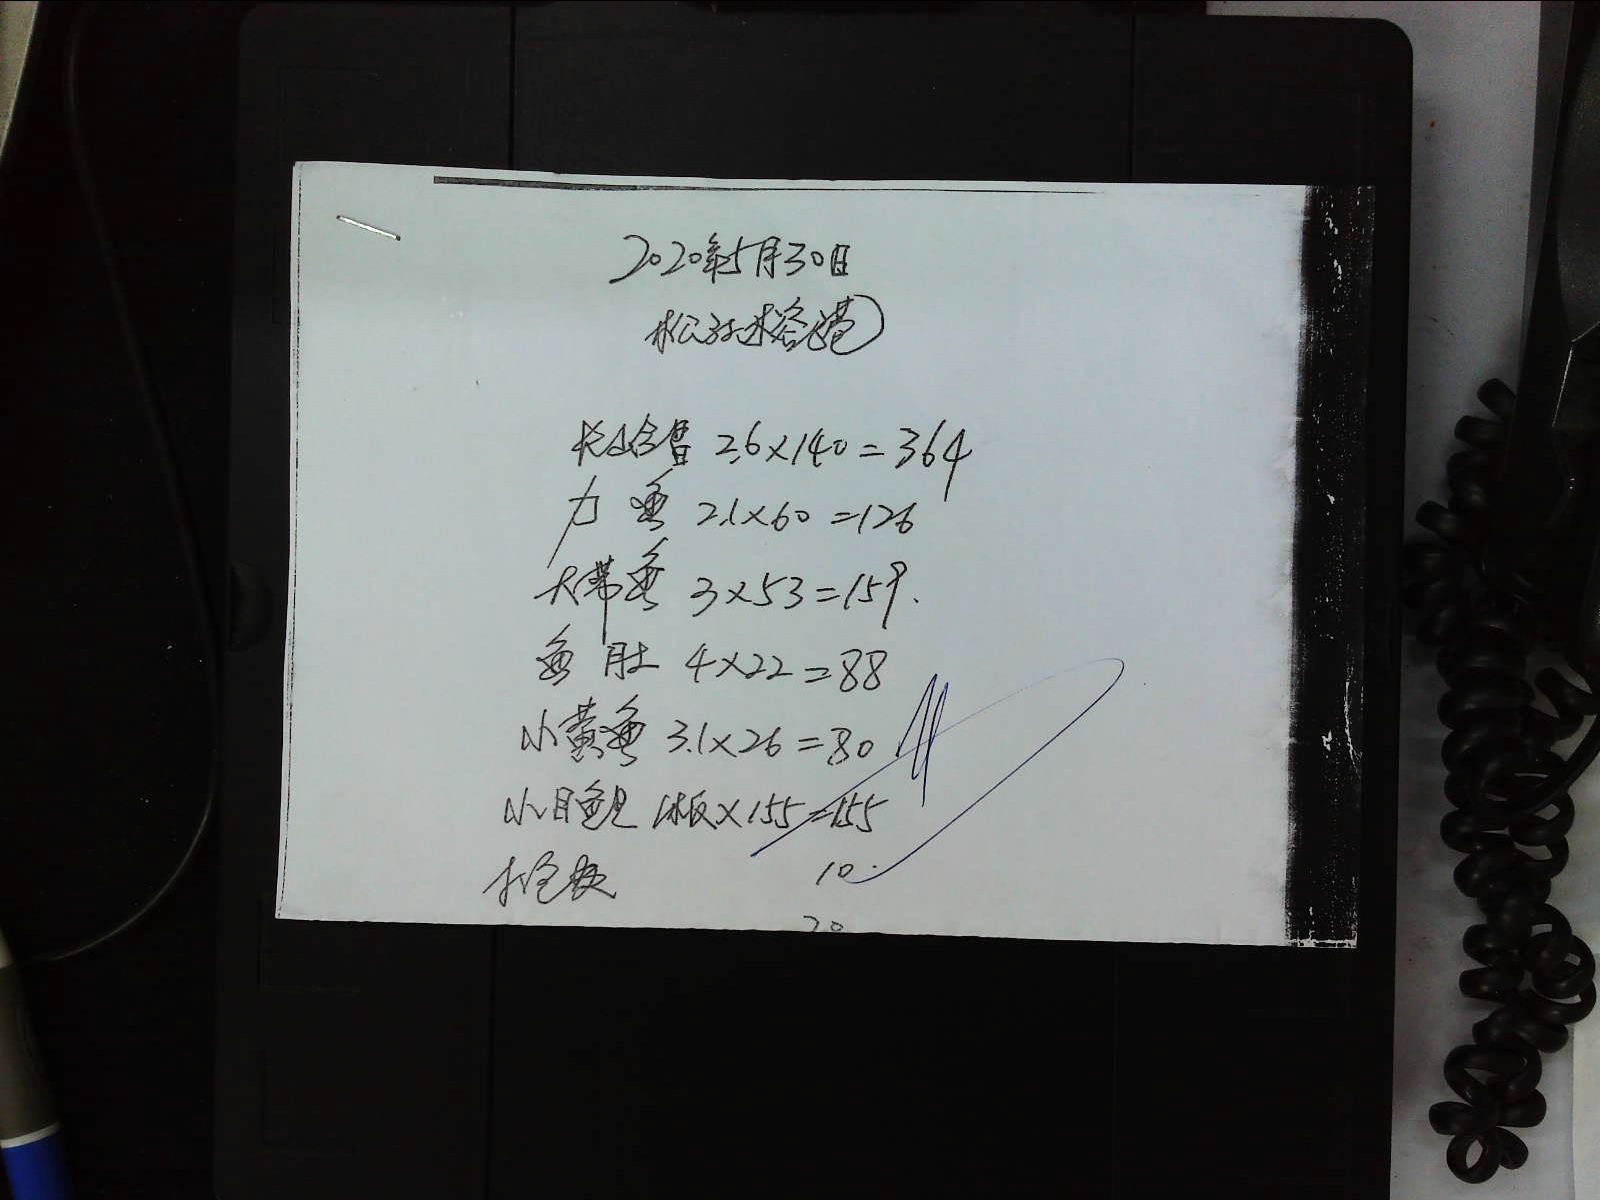 2020年5月30日
2.6×140=364
力鱼 2.1×60=126
大带鱼 3×53=159.
鱼肚 4×22=88
小黄鱼 3.1×26=80
小目鱼 1板×155=155
10.
20